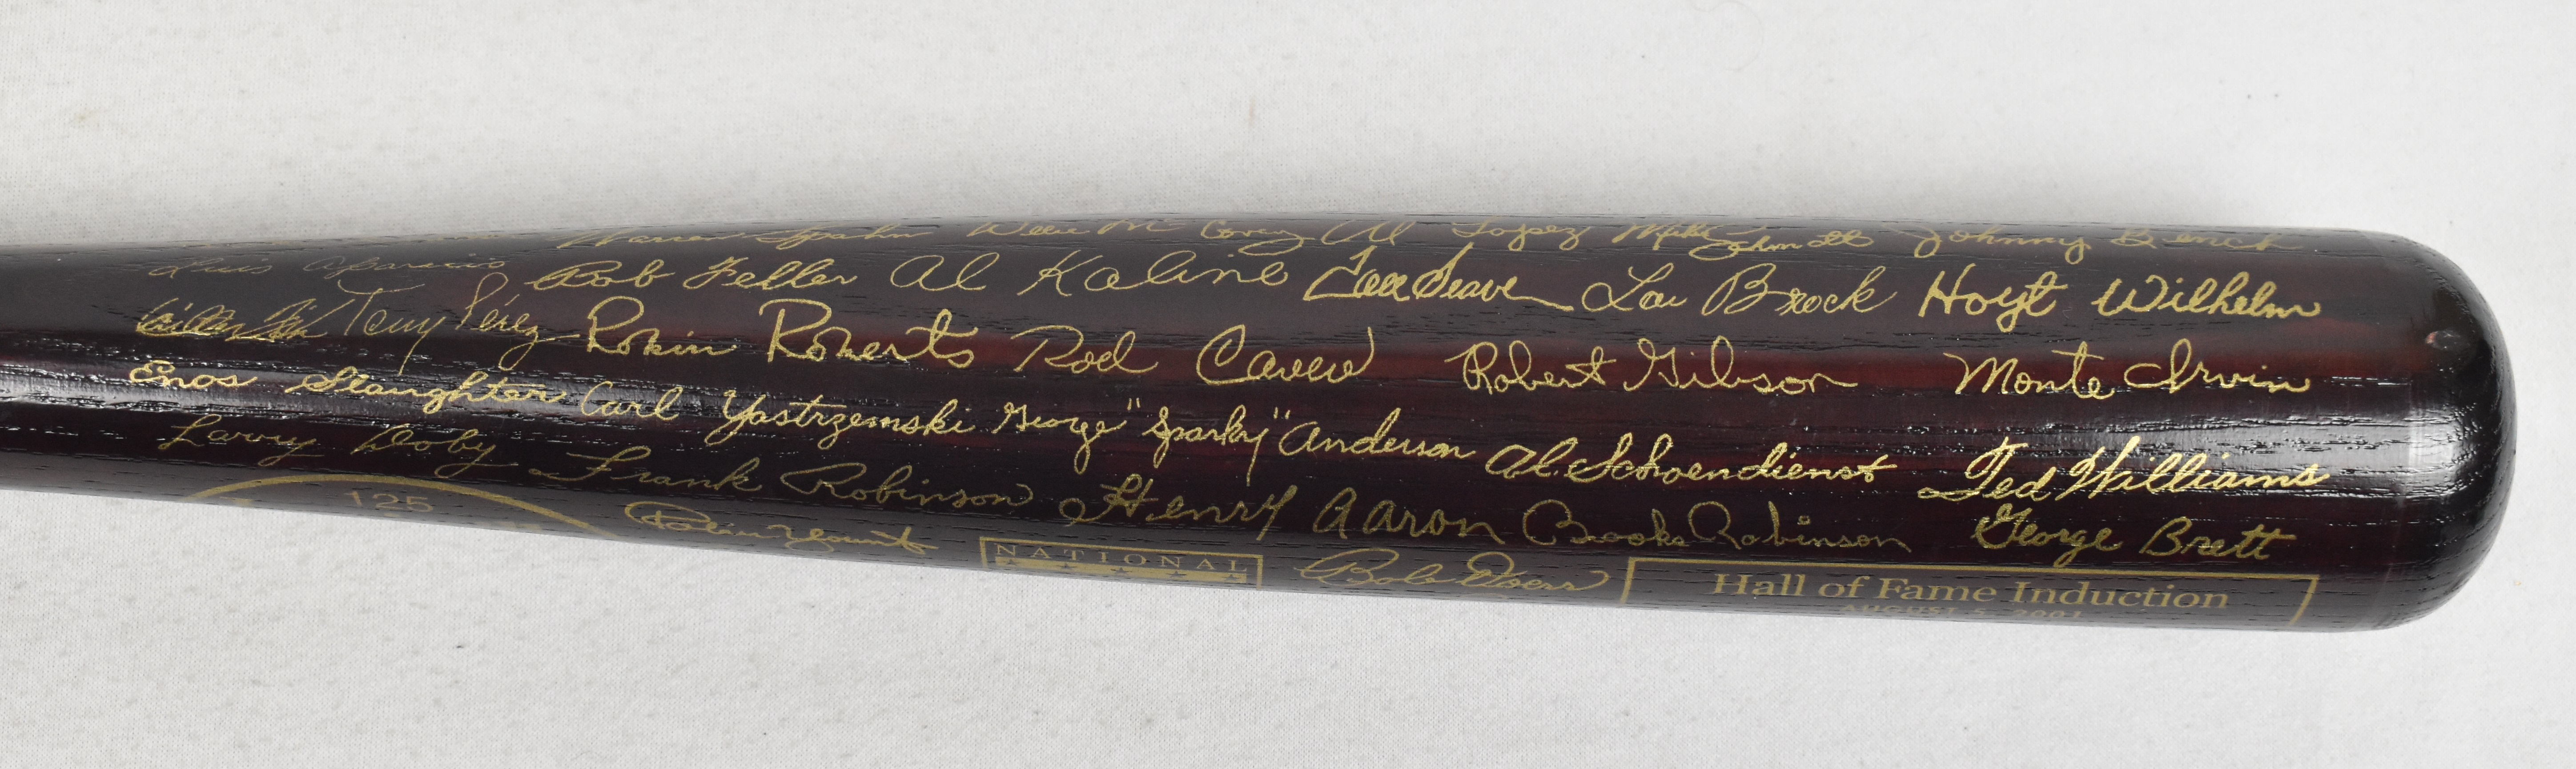 Warren Spahn Willie McCovey Al Lopez Mike Schmidt Johnny Bench
Luis Aparicio Bob Feller Al Kaline Tom Seaver Lou Brock Hoyt Wilhelm
Tony Pérez Robin Roberts Rod Carew Robert Gibson Monte Irvin
Enos Slaughter Carl Yastrzemski George "Sparky" Anderson Al. Schoendienst Ted Williams
Larry Doby Frank Robinson Henry Aaron Brooks Robinson George Brett
125 Robin Yount NATIONAL Bob Doerr Hall of Fame Induction
AUGUST 5, 2001